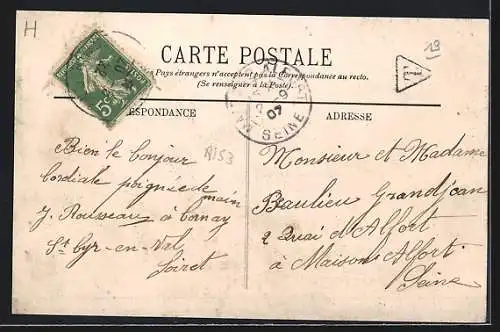 H
19
CARTE POSTALE
Pays étrangers n'acceptent pas la Correspondance au recto.
(Se renseigner à la Poste).
5c
07
SEINE
E
ESPONDANCE
ADRESSE
A153
Bien le bonjour
Cordiale poignée de main
J. Rousseau à Cornay
St Cyr-en-Val
Loiret
Monsieur et Madame
Beaulieu Grandjean
2 Quai d'Alfort
à Maisons Alfort.
Seine